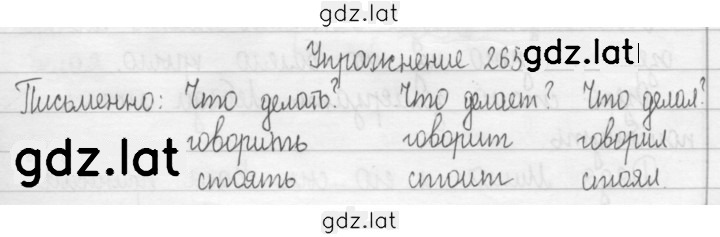 gdz.lat
Упражнение 265 gdz.lat
Письменно: Что делать? Что делает? Что делал?
говорить говорит говорил
gdz.lat
стоять стоит стоял.
gdz.lat